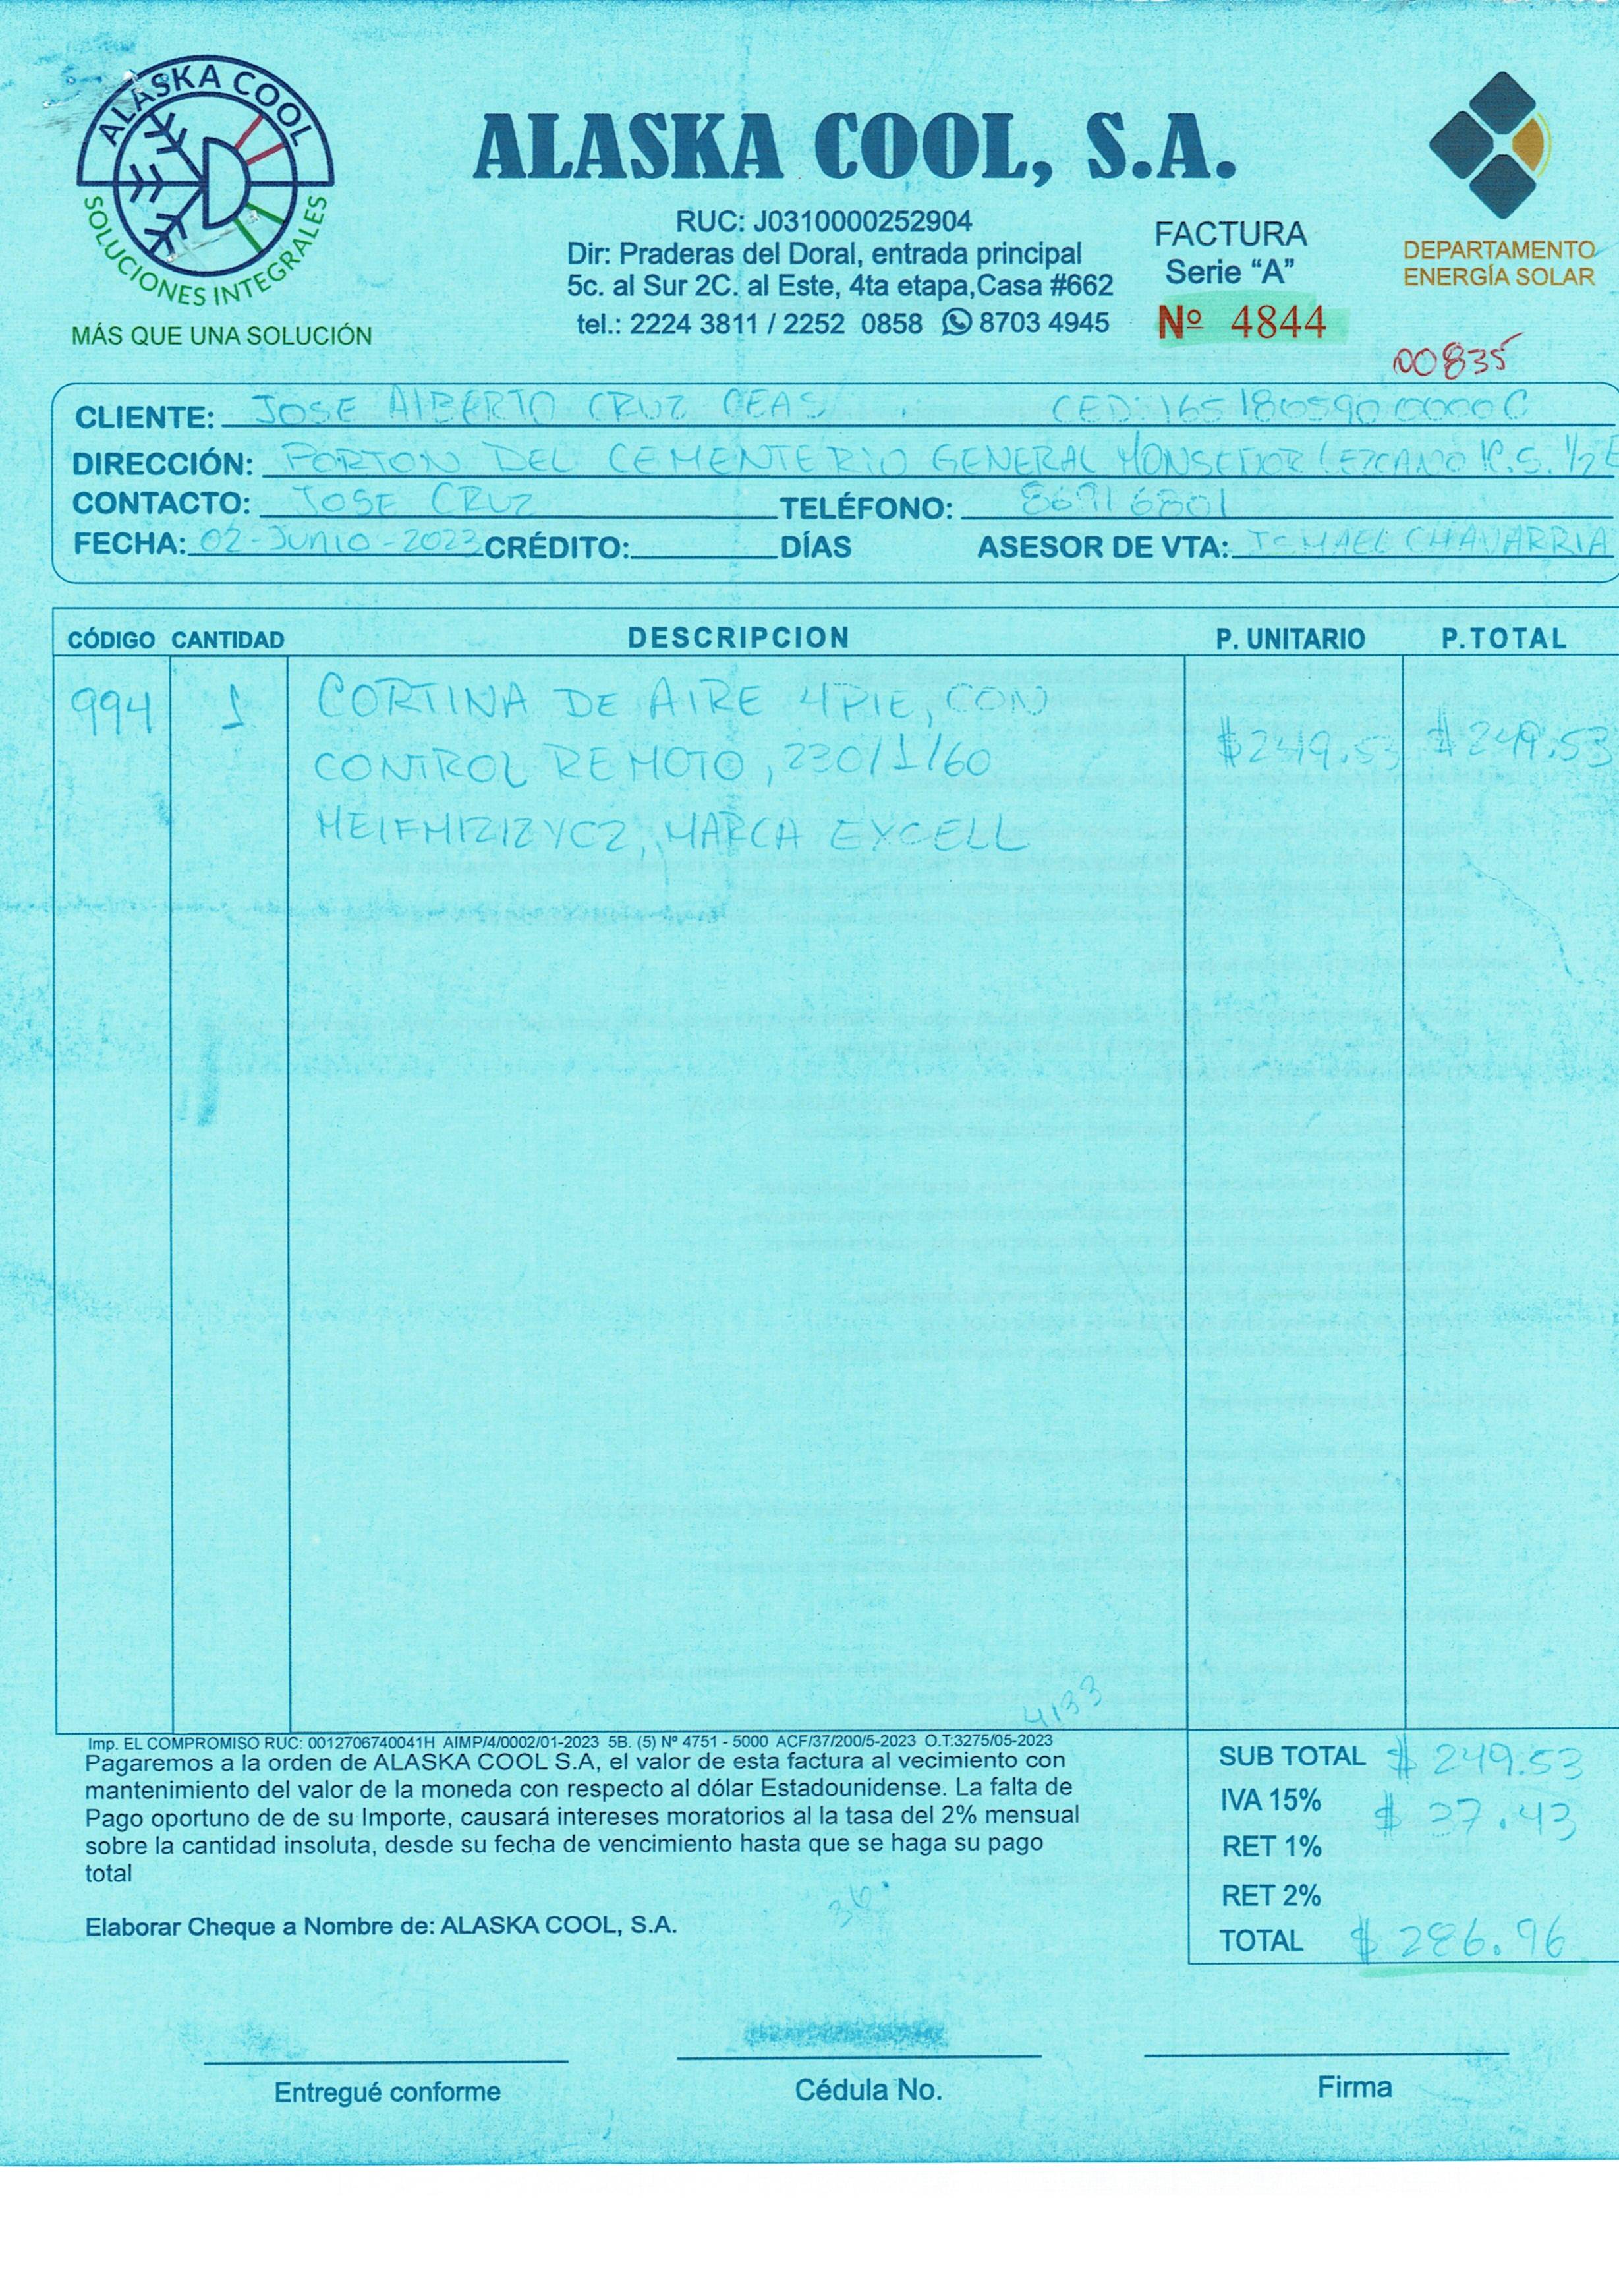 ALASKA COOL
SOLUCIONES INTEGRALES
MÁS QUE UNA SOLUCIÓN
ALASKA COOL, S.A.
RUC: J0310000252904
Dir: Praderas del Doral, entrada principal
5c. al Sur 2C. al Este, 4ta etapa,Casa #662
tel.: 2224 3811 / 2252 0858 8703 4945
FACTURA
Serie “A”
Nº 4844
DEPARTAMENTO
ENERGÍA SOLAR
00835
CLIENTE: JOSE AlBERTO CRUZ CED:
DIRECCIÓN: PORTON DEL CEMENTERIO GENERAL MONSEÑOR LEZCANO 1C.S. 1/2 E
CONTACTO: JOSE CRUZ TELÉFONO:
FECHA: 02-JUNIO-2023 CRÉDITO: DÍAS ASESOR DE VTA: ISMAEL CHAVARRIA
CÓDIGO CANTIDAD DESCRIPCION P. UNITARIO P.TOTAL
994 1 CORTINA DE AIRE 4PIE, CON
CONTROL REMOTO, 230/1/60 $249.53 $249.53
MARCA EXCELL
4133
Imp. EL COMPROMISO RUC: 0012706740041H AIMP/4/0002/01-2023 5B. (5) Nº 4751 - 5000 ACF/37/200/5-2023 O.T:3275/05-2023
Pagaremos a la orden de ALASKA COOL S.A, el valor de esta factura al vecimiento con
mantenimiento del valor de la moneda con respecto al dólar Estadounidense. La falta de
Pago oportuno de de su Importe, causará intereses moratorios al la tasa del 2% mensual
sobre la cantidad insoluta, desde su fecha de vencimiento hasta que se haga su pago
total
Elaborar Cheque a Nombre de: ALASKA COOL, S.A.
SUB TOTAL $ 249.53
IVA 15% $ 37.43
RET 1%
RET 2%
TOTAL $ 286.96
Entregué conforme
Cédula No.
Firma